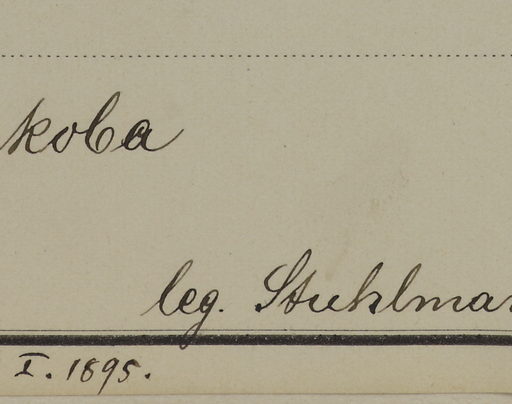 koba
leg. Stuhlma
I. 1895.